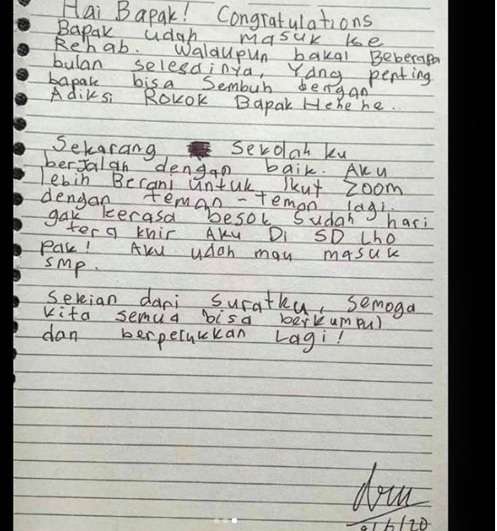 Hai Bapak! Congratulations
Bapak udah masuk ke
Rehab. Walaupun bakal Beberapa
bulan selesainya, Yang penting
bapak bisa Sembuh dengan
Adiksi Rokok Bapak Hehehe..
Sekarang Sekolah ku
berjalan dengan baik. Aku
lebih Berani untuk Ikut Zoom
dengan teman-teman lagi.
gak kerasa besok sudah hari
tera khir Aku Di SD Lho
pak! Aku udah mau masuk
SMP.
Sekian dari suratku, semoga
kita semua bisa berkumpul
dan berpelukkan Lagi!